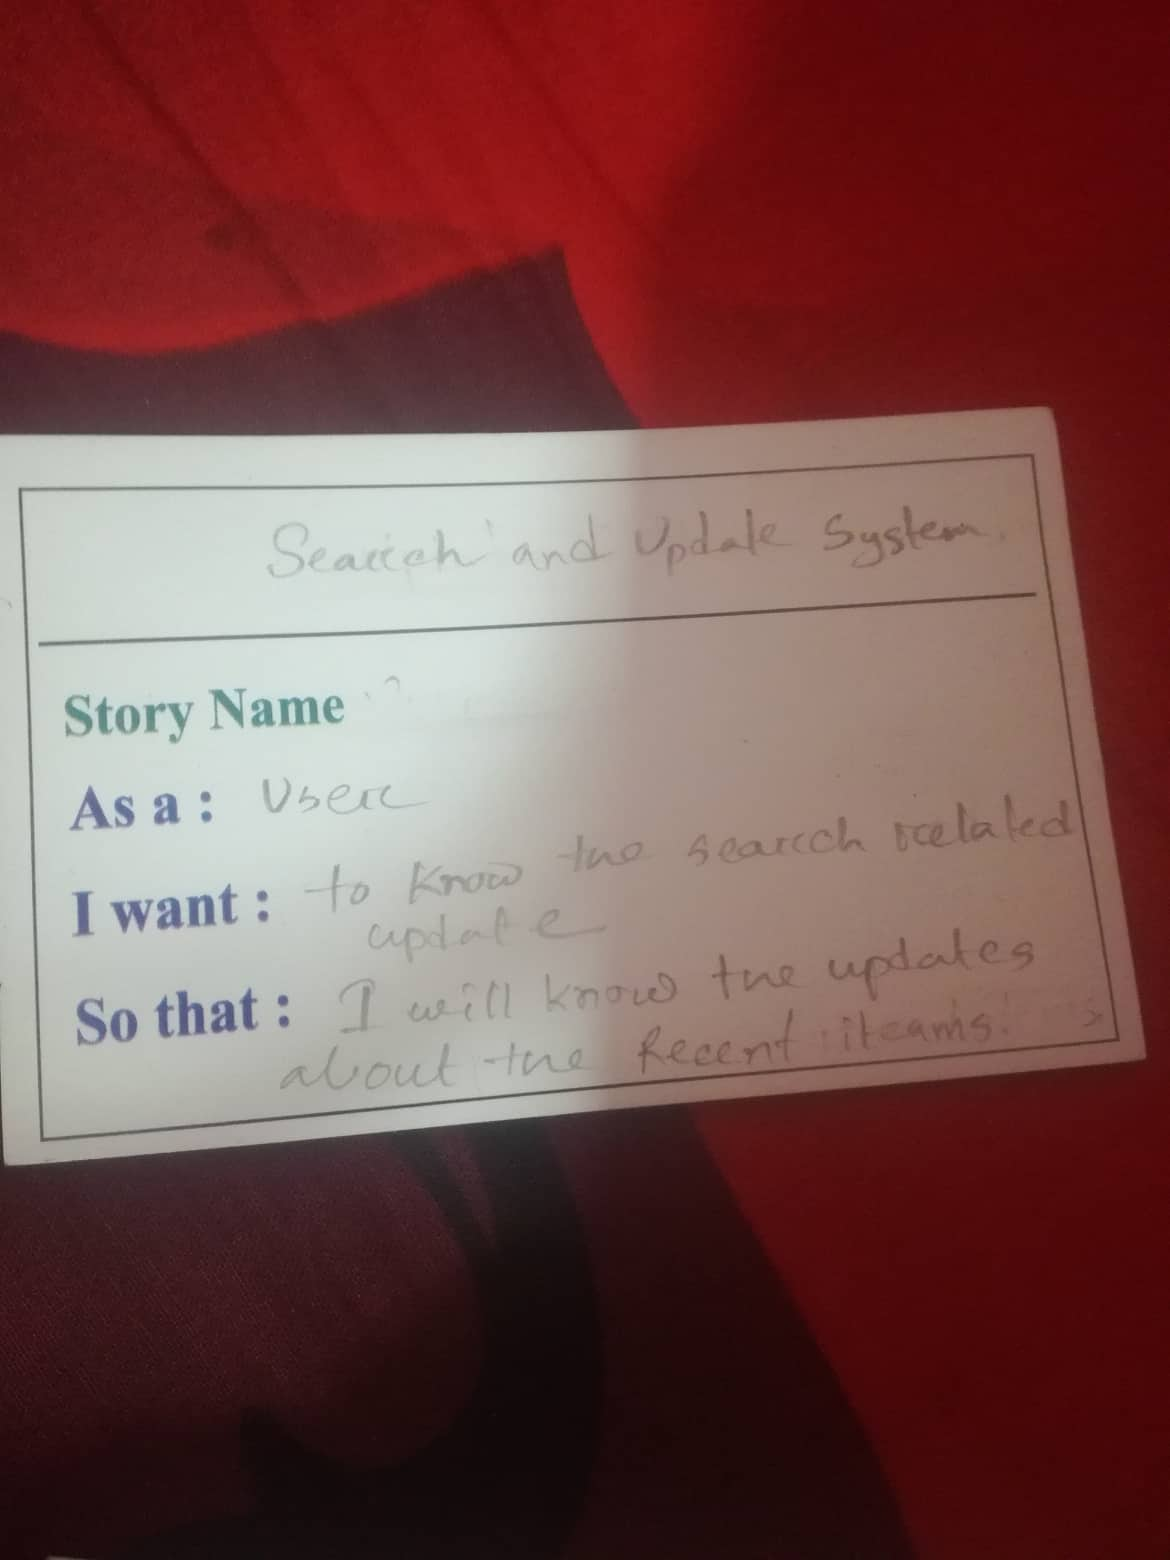 Search and Update System.
Story Name
As a : User
I want : to know the search related
update
So that : I will know the updates
about the Recent iteams.